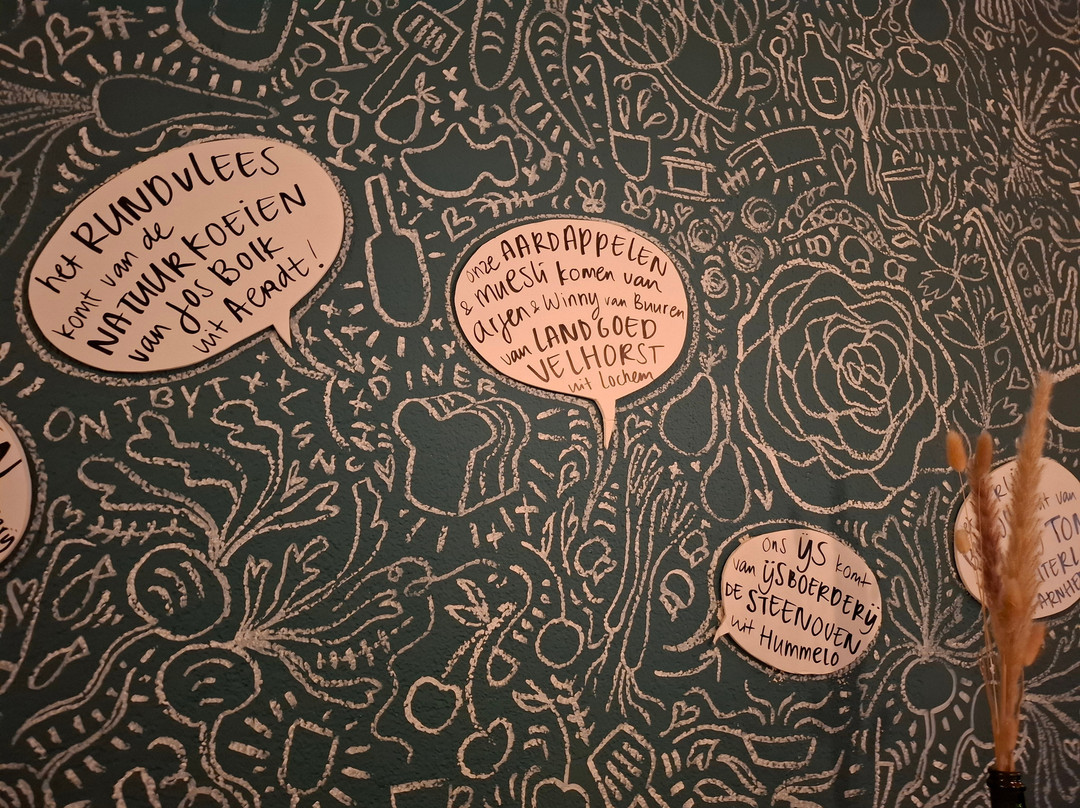 het RUNDVLEES
komt van de
NATUURKOEIEN
van Jos Bolk
uit Aerdt!
onze AARDAPPELEN
& muesli komen van
Arjen & Winny van Buuren
van LANDGOED
VELHORST
uit Lochem
ons ijs komt
van ijSBOERDERij
DE STEENOVEN
uit Hummelo
ONTBYT
LUNCH
DINER